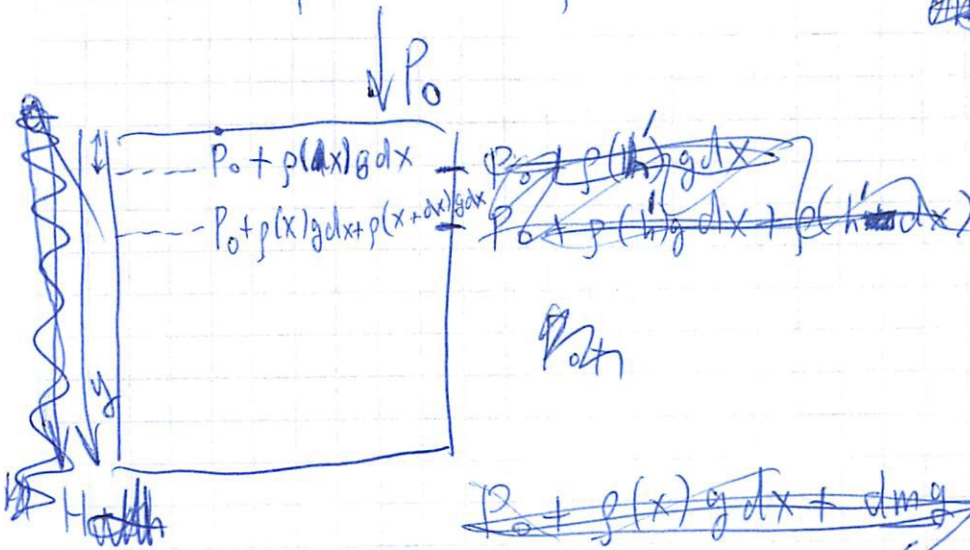 P₀
P₀ + ρ(dx)gdx
P₀ + ρ(x)gdx + ρ(x+dx)gdx
P₀ + ρ(h')gdx
P₀ + ρ(h')gdx + ρ(h' dx)
P₀+
y
H
P₀ + ρ(x)gdx + dmg